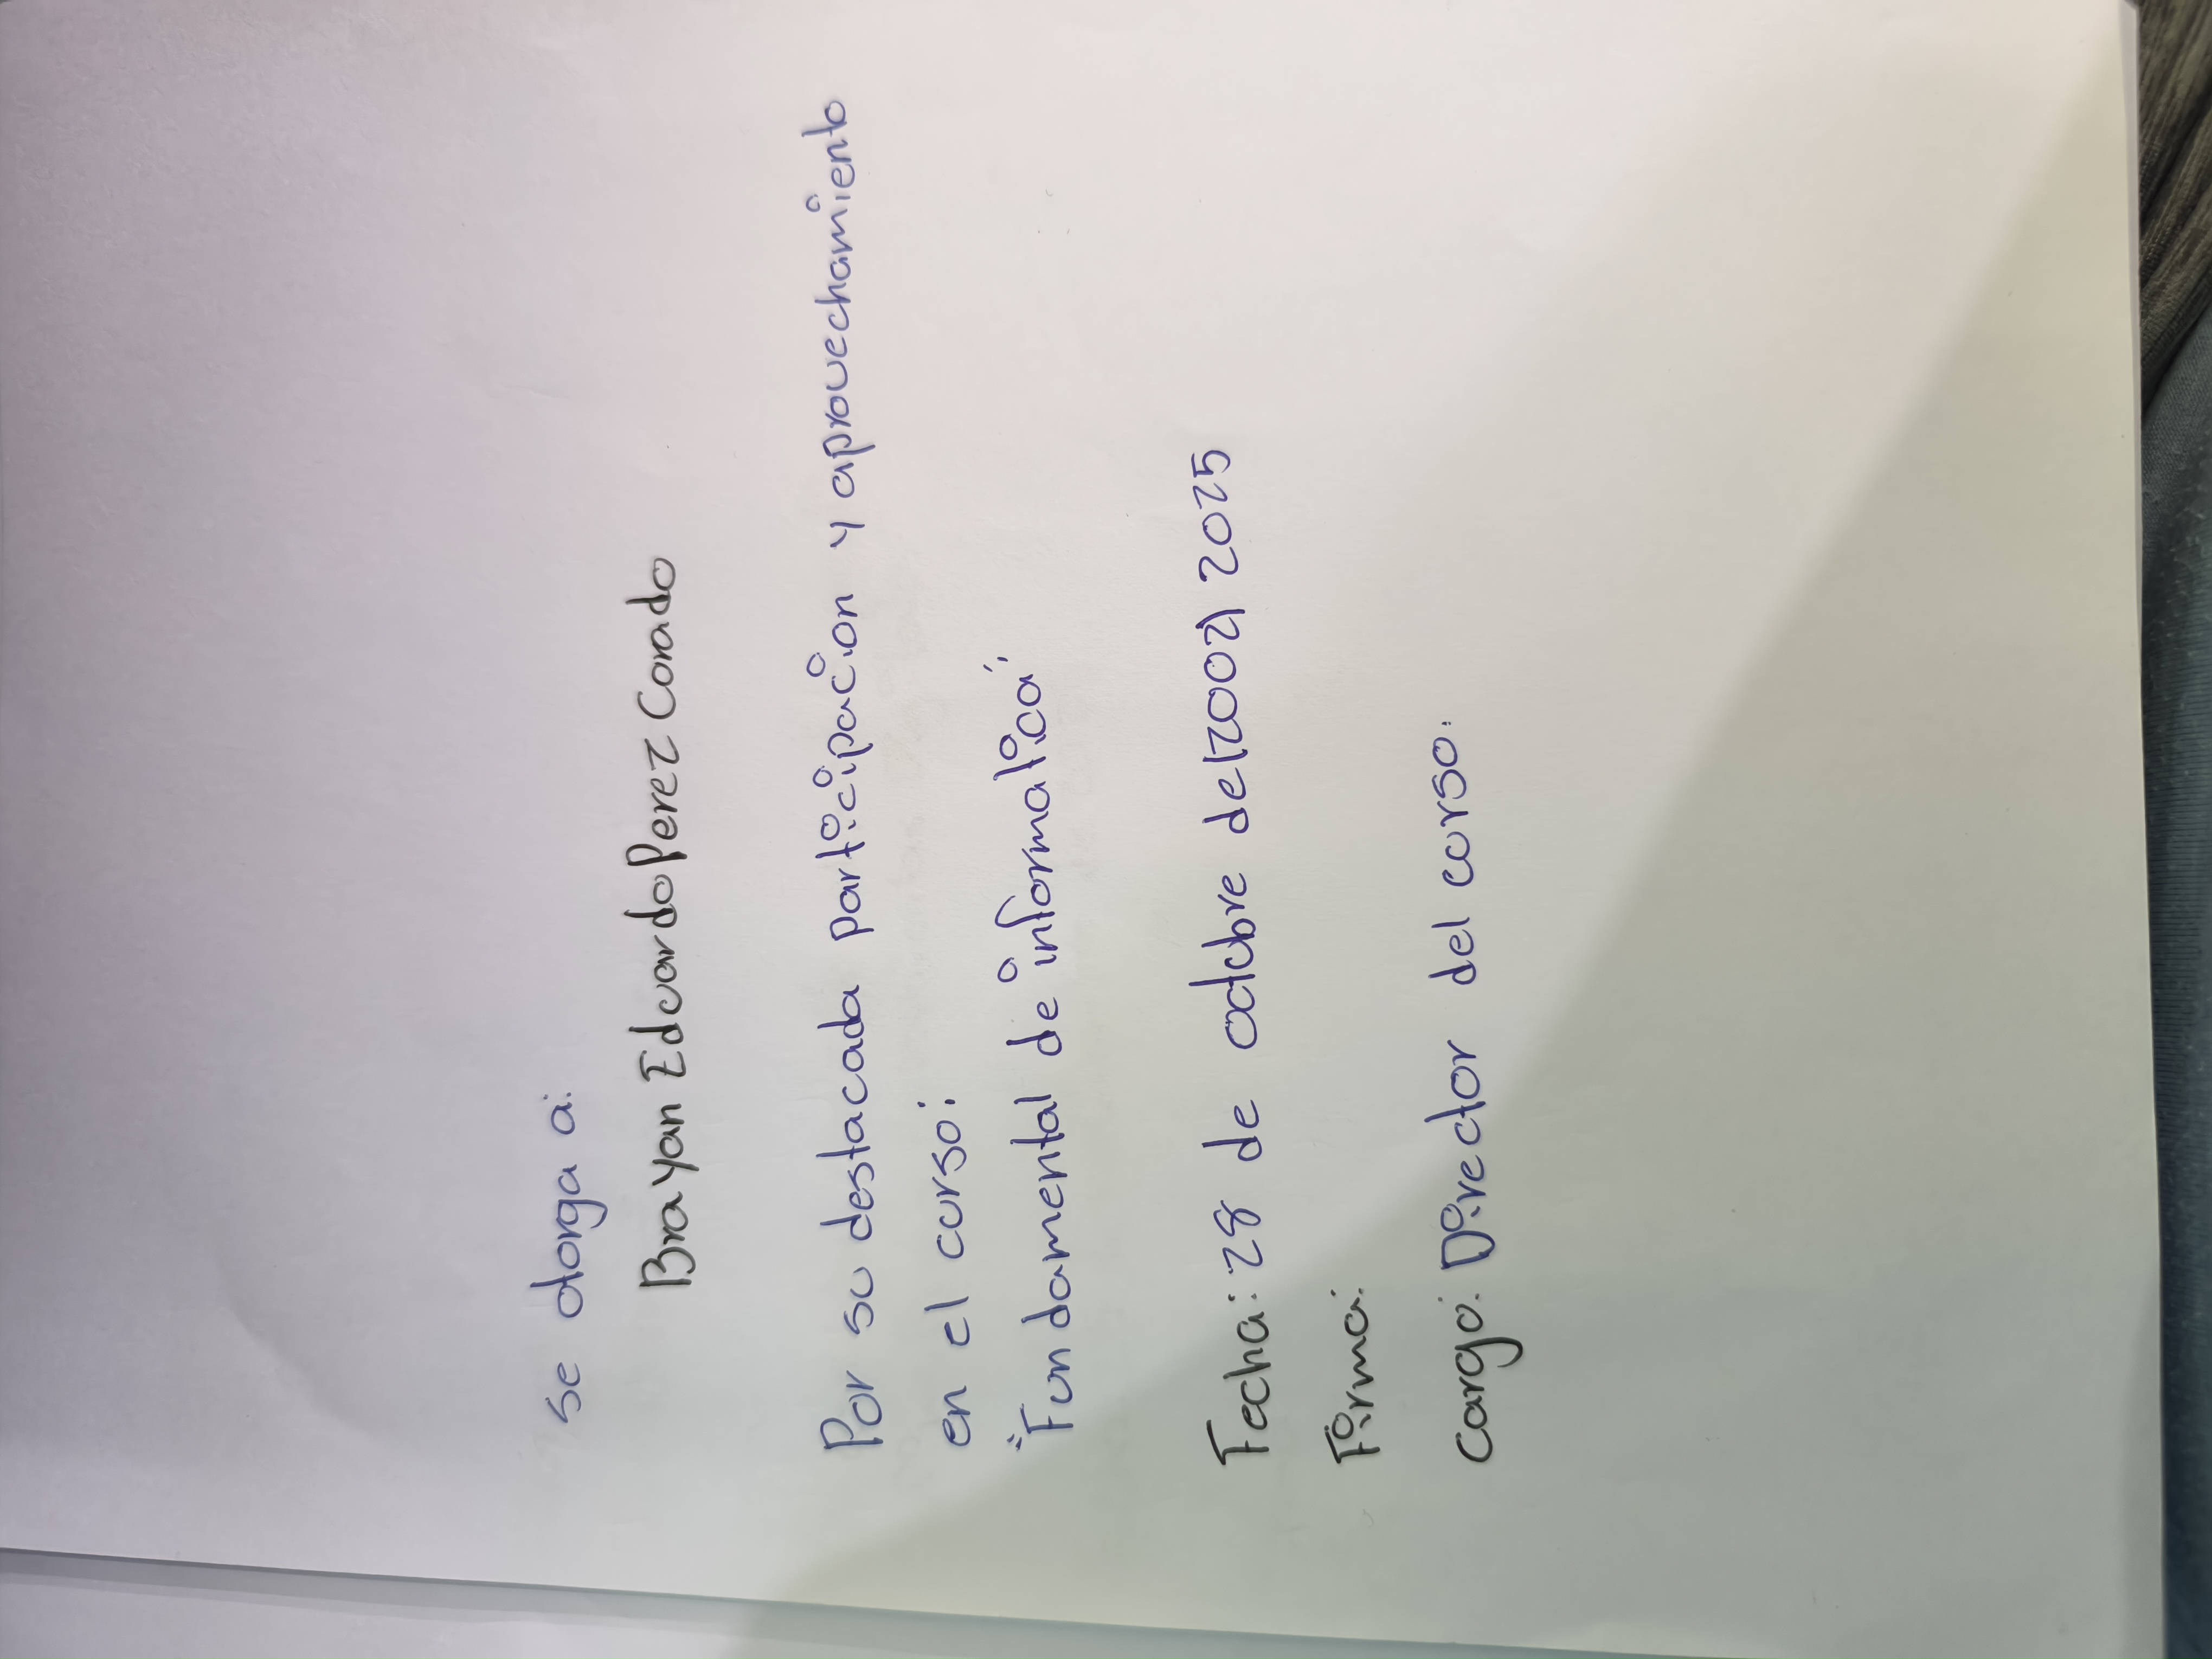 se otorga a:
Brayan Eduardo Perez Corado
Por su destacada participación y aprovechamiento
en el curso:
"Fundamental de informatica"
Fecha: 28 de octubre del 2025
Firma:
Cargo: Director del curso.